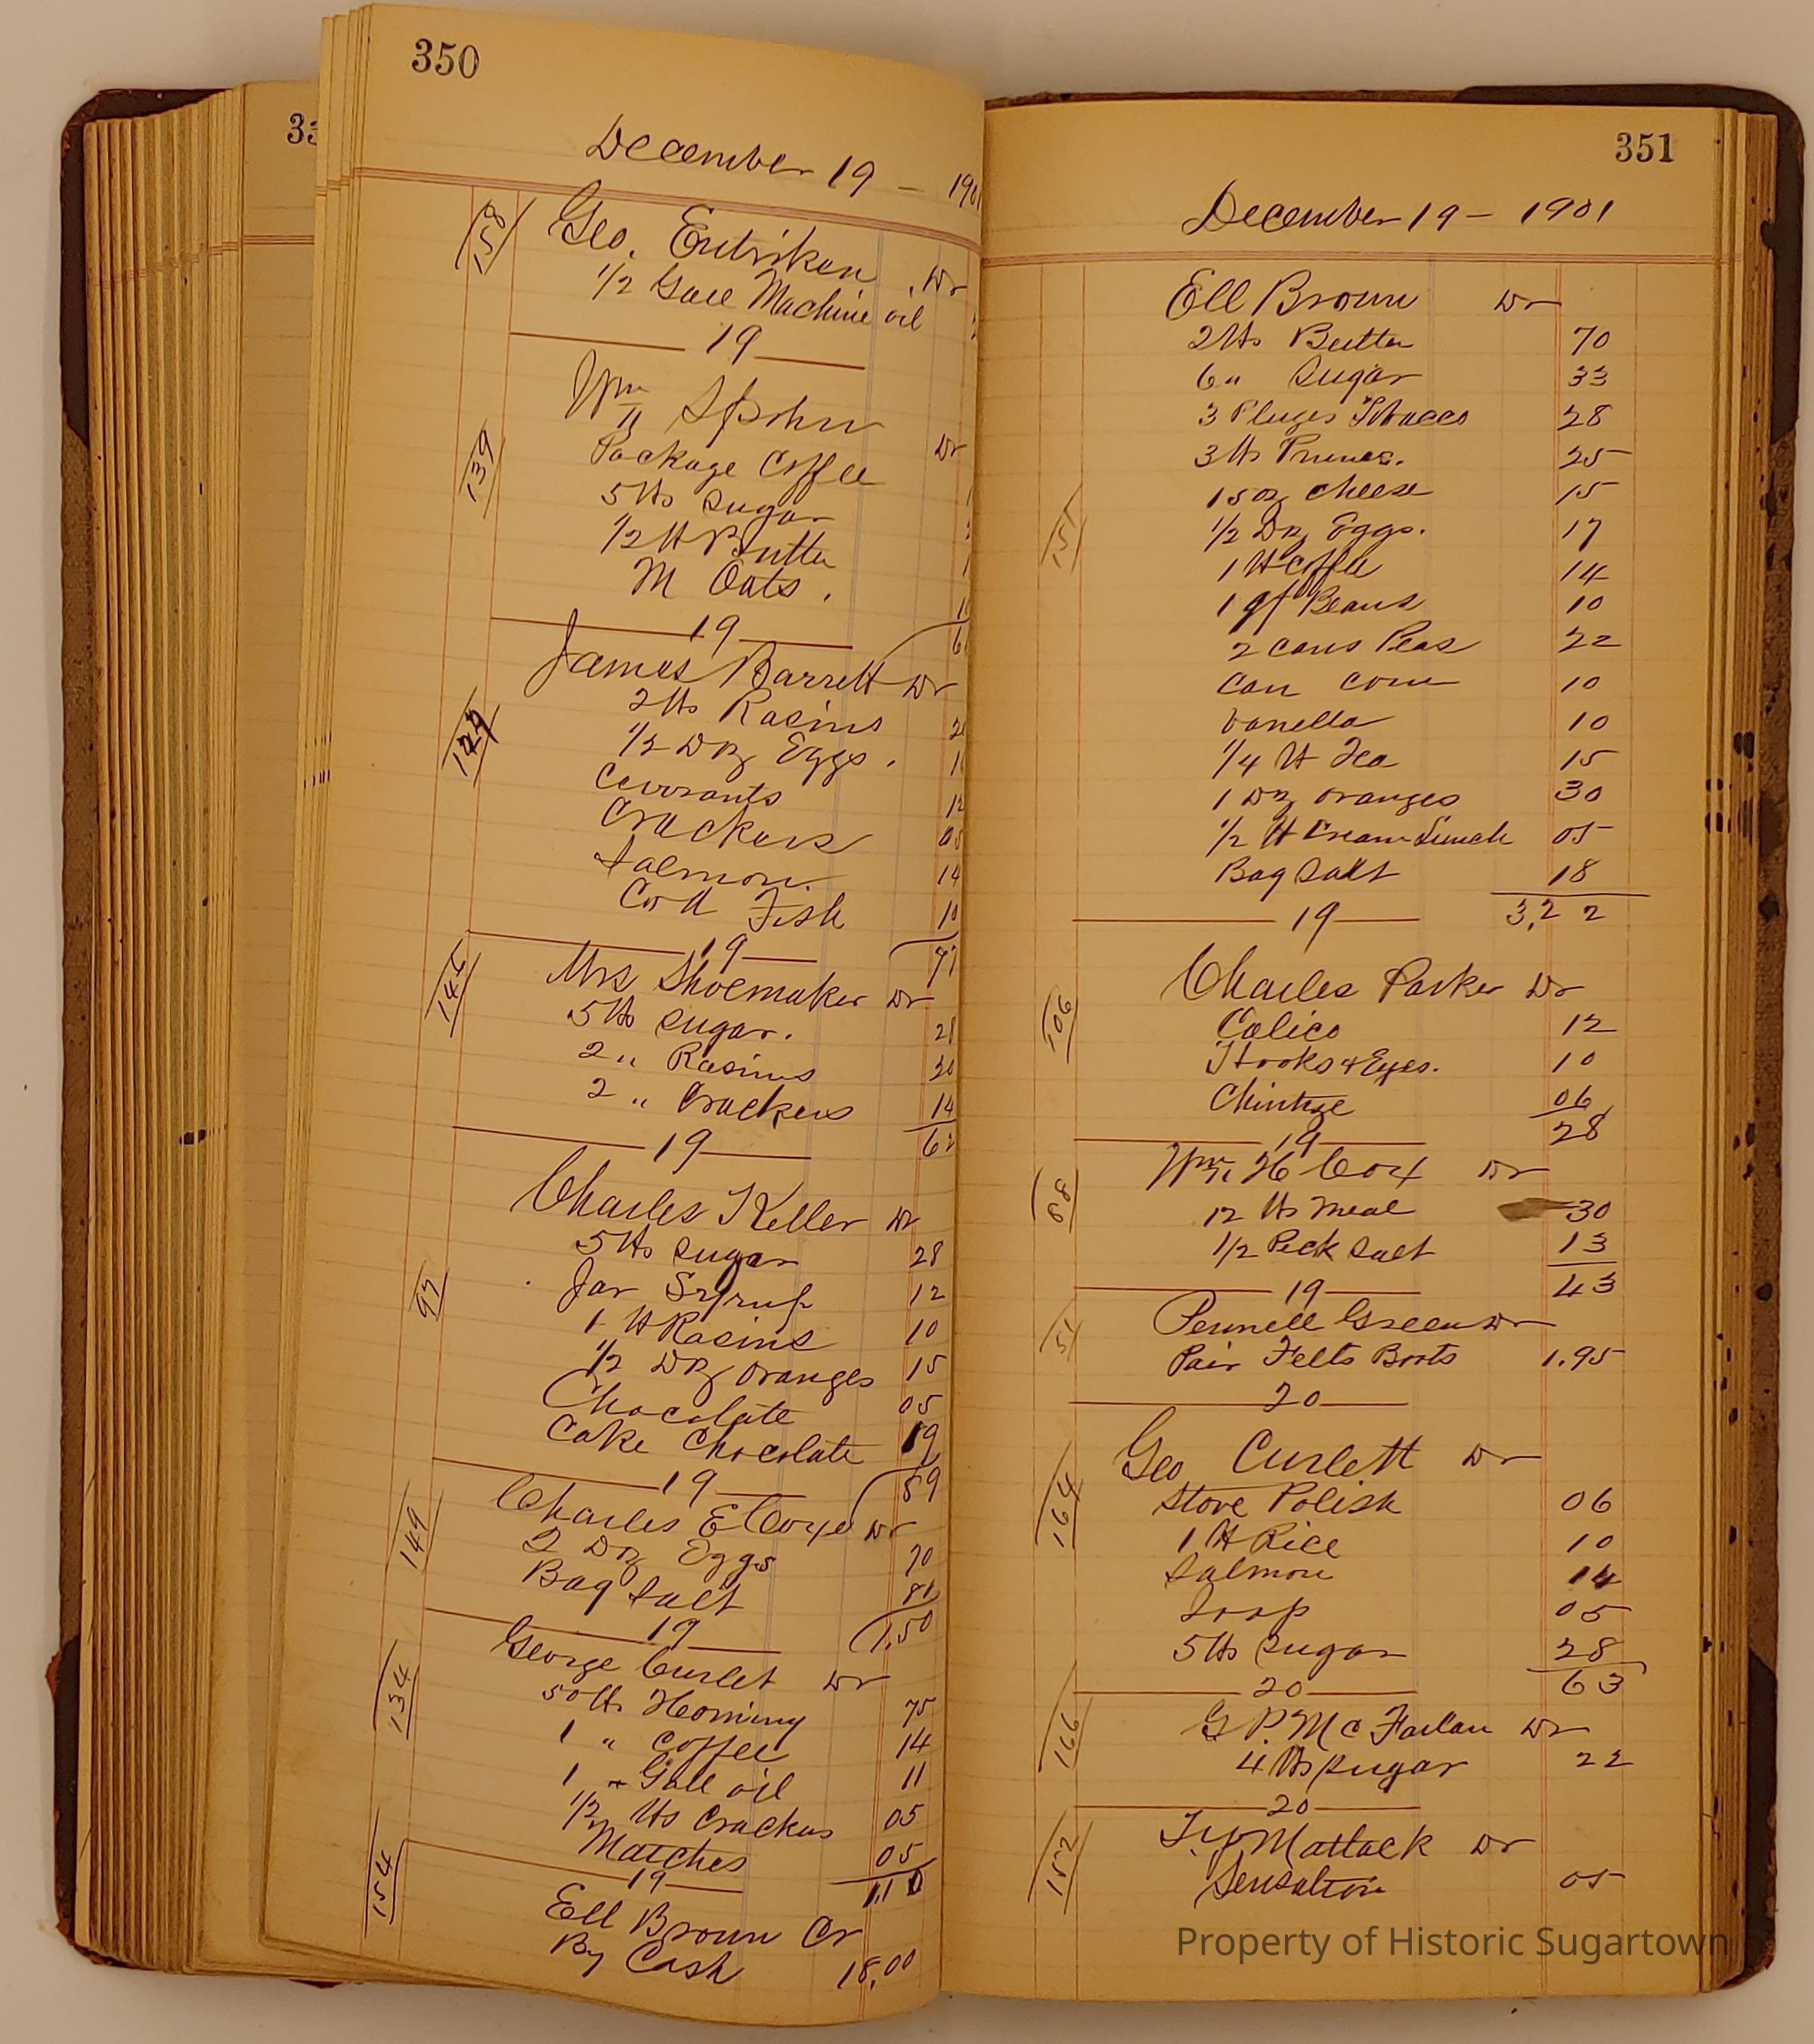 350
December 19 - 1901
158
Geo. Entriken Dr
1/2 Gall Machine oil
19
139
Wm Spohn Dr
Package Coffee
5 lbs Sugar
1/2 lb Butter
M Oats.
19
James Barrett Dr
2 lbs Rasins
1/2 Dz Eggs.
Currants 12
Crackers 05
Salmon. 14
Cod Fish 10
19
146
Mrs Shoemaker Dr
5 lbs Sugar. 28
2 " Rasins 20
2 " Crackers 14
62
19
97
Charles Keller Dr
5 lbs Sugar 28
Jar Syrup 12
1 lb Rasins 10
1/2 Dz Oranges 15
Chocolate 05
Cake Chocolate 19
89
19
149
Charles E Coxe Dr
2 Dz Eggs 70
Bag Salt 80
1.50
19
134
George Curlet Dr
50 lbs Hominy 75
1 " Coffee 14
1 " Gall oil 11
1/2 lbs Crackers 05
Matches 05
1.10
19
154
Ell Brown Cr
By Cash 18.00
351
December 19 - 1901
151
Ell Brown Dr
2 lbs Butter 70
6 " Sugar 33
3 Pluges Tobacco 28
3 lbs Prunes. 25
15 oz Cheese 15
1/2 Dz Eggs. 17
1 lb Coffee 14
1 qt Beans 10
2 cans Peas 22
Can Corn 10
Vanella 10
1/4 lb Tea 15
1 Dz oranges 30
1/2 lb Cream Lunch 05
Bag Salt 18
3,22
19
106
Charles Parker Dr
Calico 12
Hooks & Eyes. 10
Chintze 06
28
19
88
Wm H Cox Dr
12 lbs Meal 30
1/2 Peck Salt 13
43
19
51
Pennell Green Dr
Pair Felts Boots 1.95
20
164
Geo Curlett Dr
Stove Polish 06
1 lb Rice 10
Salmon 14
Soap 05
5 lbs Sugar 28
63
20
166
G P. McFarlan Dr
4 lbs Sugar 22
20
152
Mattack Dr
Sensation 05
Property of Historic Sugartown